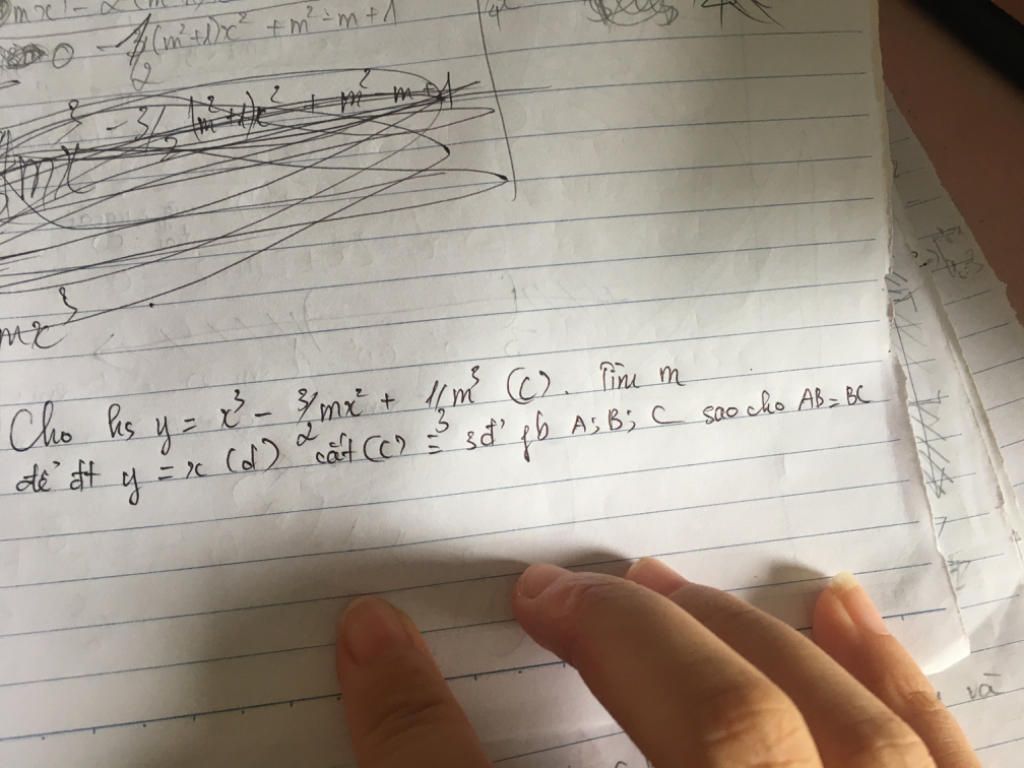 - 1/2 (m²+1)x² + m² - m + 1
- 3/2 (m²+1)x² + m² - m + 1
mx³
Cho hs y = x³ - 3/2 mx² + 1/3 m³ (C). Tìm m
để đt y = x (d) cắt (C) = 3đ' pb A; B; C sao cho AB = BC
và